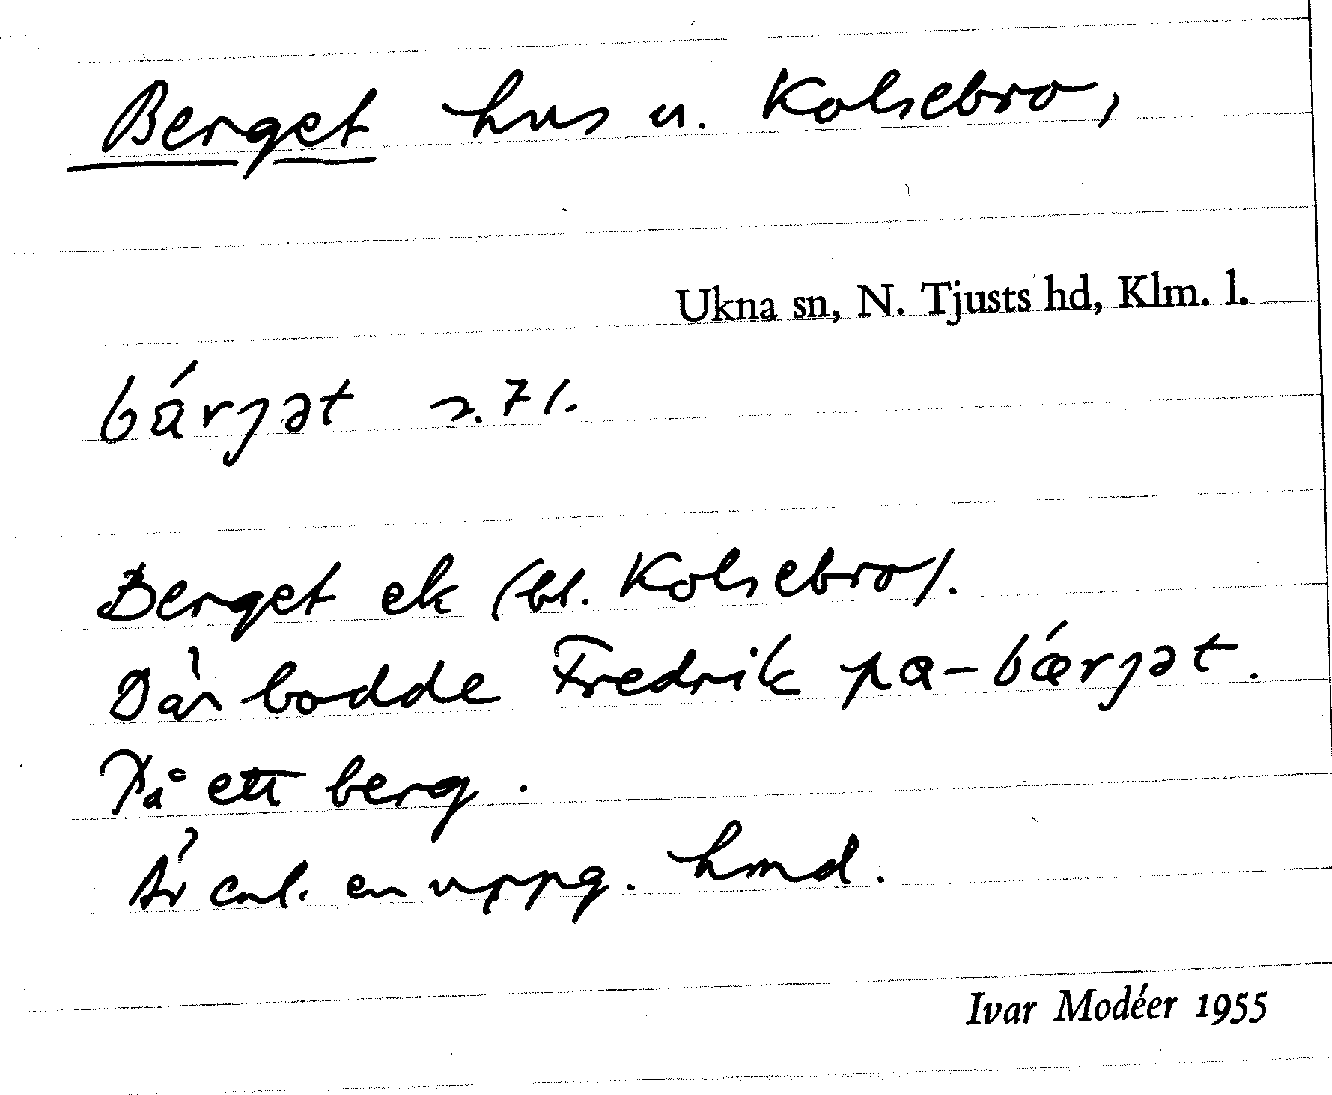 Berget hus u. Kolsebro,
Ukna sn, N. Tjusts hd, Klm. l.
bárɟət s. 71.
Berget ek (bl. Kolsebro).
Där bodde Fredrik pa-bǽrɟət.
På ett berg.
Är enl. en uppg. hmd.
Ivar Modéer 1955